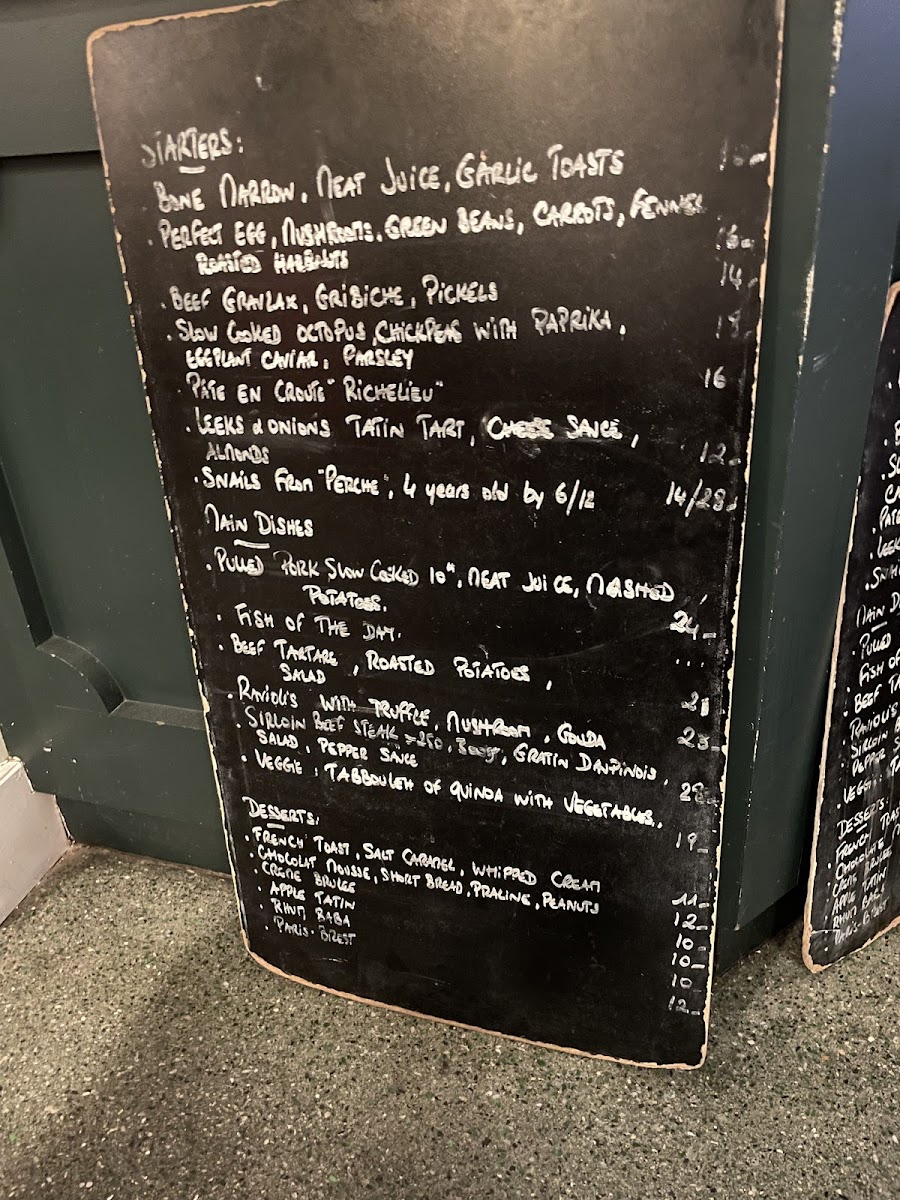 STARTERS:
BONE MARROW, MEAT JUICE, GARLIC TOASTS
. PERFECT EGG, MUSHROOMS, GREEN BEANS, CARROTS, FENNEL 16-
ROASTED HAZELNUTS
. BEEF GRAVLAX, GRIBICHE, PICKELS 14-
. SLOW COOKED OCTOPUS, CHICKPEAS WITH PAPRIKA, 18-
EGGPLANT CAVIAR, PARSLEY
. PATE EN CROUTE "RICHELIEU" 16
. LEEKS & ONIONS TATIN TART, CHEESE SAUCE,
ALMONDS 12-
. SNAILS FROM "PERCHE", 4 years old by 6/12 14/28-
MAIN DISHES
. PULLED PORK SLOW COOKED 10H, MEAT JUICE, MASHED
POTATOES. 24-
. FISH OF THE DAY. ...
. BEEF TARTARE, ROASTED POTATOES,
SALAD 21
. RAVIOLIS WITH TRUFFLE, MUSHROOM, GOUDA 23-
. SIRLOIN BEEF STEAK GRATIN DAUPINOIS,
SALAD, PEPPER SAUCE 28-
. VEGGIE: TABBOULEH OF QUINOA WITH VEGETABLES, 19-
DESSERTS:
. FRENCH TOAST, SALT CARAMEL, WHIPPED CREAM 11-
. CHOCOLAT MOUSSE, SHORT BREAD, PRALINE, PEANUTS 12-
. CREME BRULEE 10-
. APPLE TATIN 10-
. RHUM BABA 10
. PARIS-BREST 12-
MAIN D
. PULLED
. FISH OF
. BEEF TA
. RAVIOLIS
. SIRLOIN B
PEPPER S
. VEGGIE: TA
DESSERTS:
. FRENCH TOAST
. CHOCOLATE M
. CREME BRULEE
. APPLE TATIN
. RHUM BABA
. PARIS-BREST